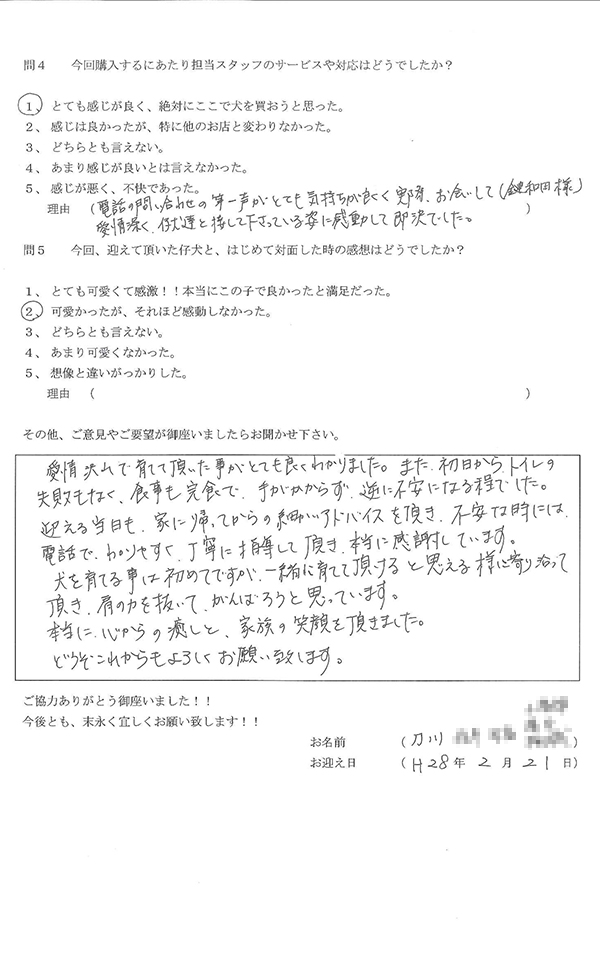 問４　今回購入するにあたり担当スタッフのサービスや対応はどうでしたか？
１、とても感じが良く、絶対にここで犬を買おうと思った。
２、感じは良かったが、特に他のお店と変わりなかった。
３、どちらとも言えない。
４、あまり感じが良いとは言えなかった。
５、感じが悪く、不快であった。
理由　（電話の問い合わせの第一声がとても気持ちが良くて 実際、お会いして（ 和田様）
愛情深く、仔犬達と接して下さっている姿に感動して即決でした。　）
問５　今回、迎えて頂いた仔犬と、はじめて対面した時の感想はどうでしたか？
１、とても可愛くて感激！！本当にこの子で良かったと満足だった。
２、可愛かったが、それほど感動しなかった。
３、どちらとも言えない。
４、あまり可愛くなかった。
５、想像と違いがっかりした。
理由　（　）
その他、ご意見やご要望が御座いましたらお聞かせ下さい。
愛情 で育てて頂いた事がとても良くわかりました。また、初日から、トイレの
失敗もなく、食事も完食で、手がかからず、逆に不安になる程でした。
迎える当日も、家に帰ってからの細かいアドバイスを頂き、不安な時には、
電話で、わかりやすく、丁寧に指導して頂き、本当に感謝しています。
犬を育てる事は初めてですが、一緒に育てて頂けると思える様に寄り沿って
頂き、肩の力を抜いて、がんばろうと思っています。
本当に、心からの癒しと、家族の笑顔を頂きました。
どうぞこれからもよろしくお願い致します。
ご協力ありがとう御座いました！！
今後とも、末永く宜しくお願い致します！！
お名前　（刀川　）
お迎え日　（H28年2月21日）